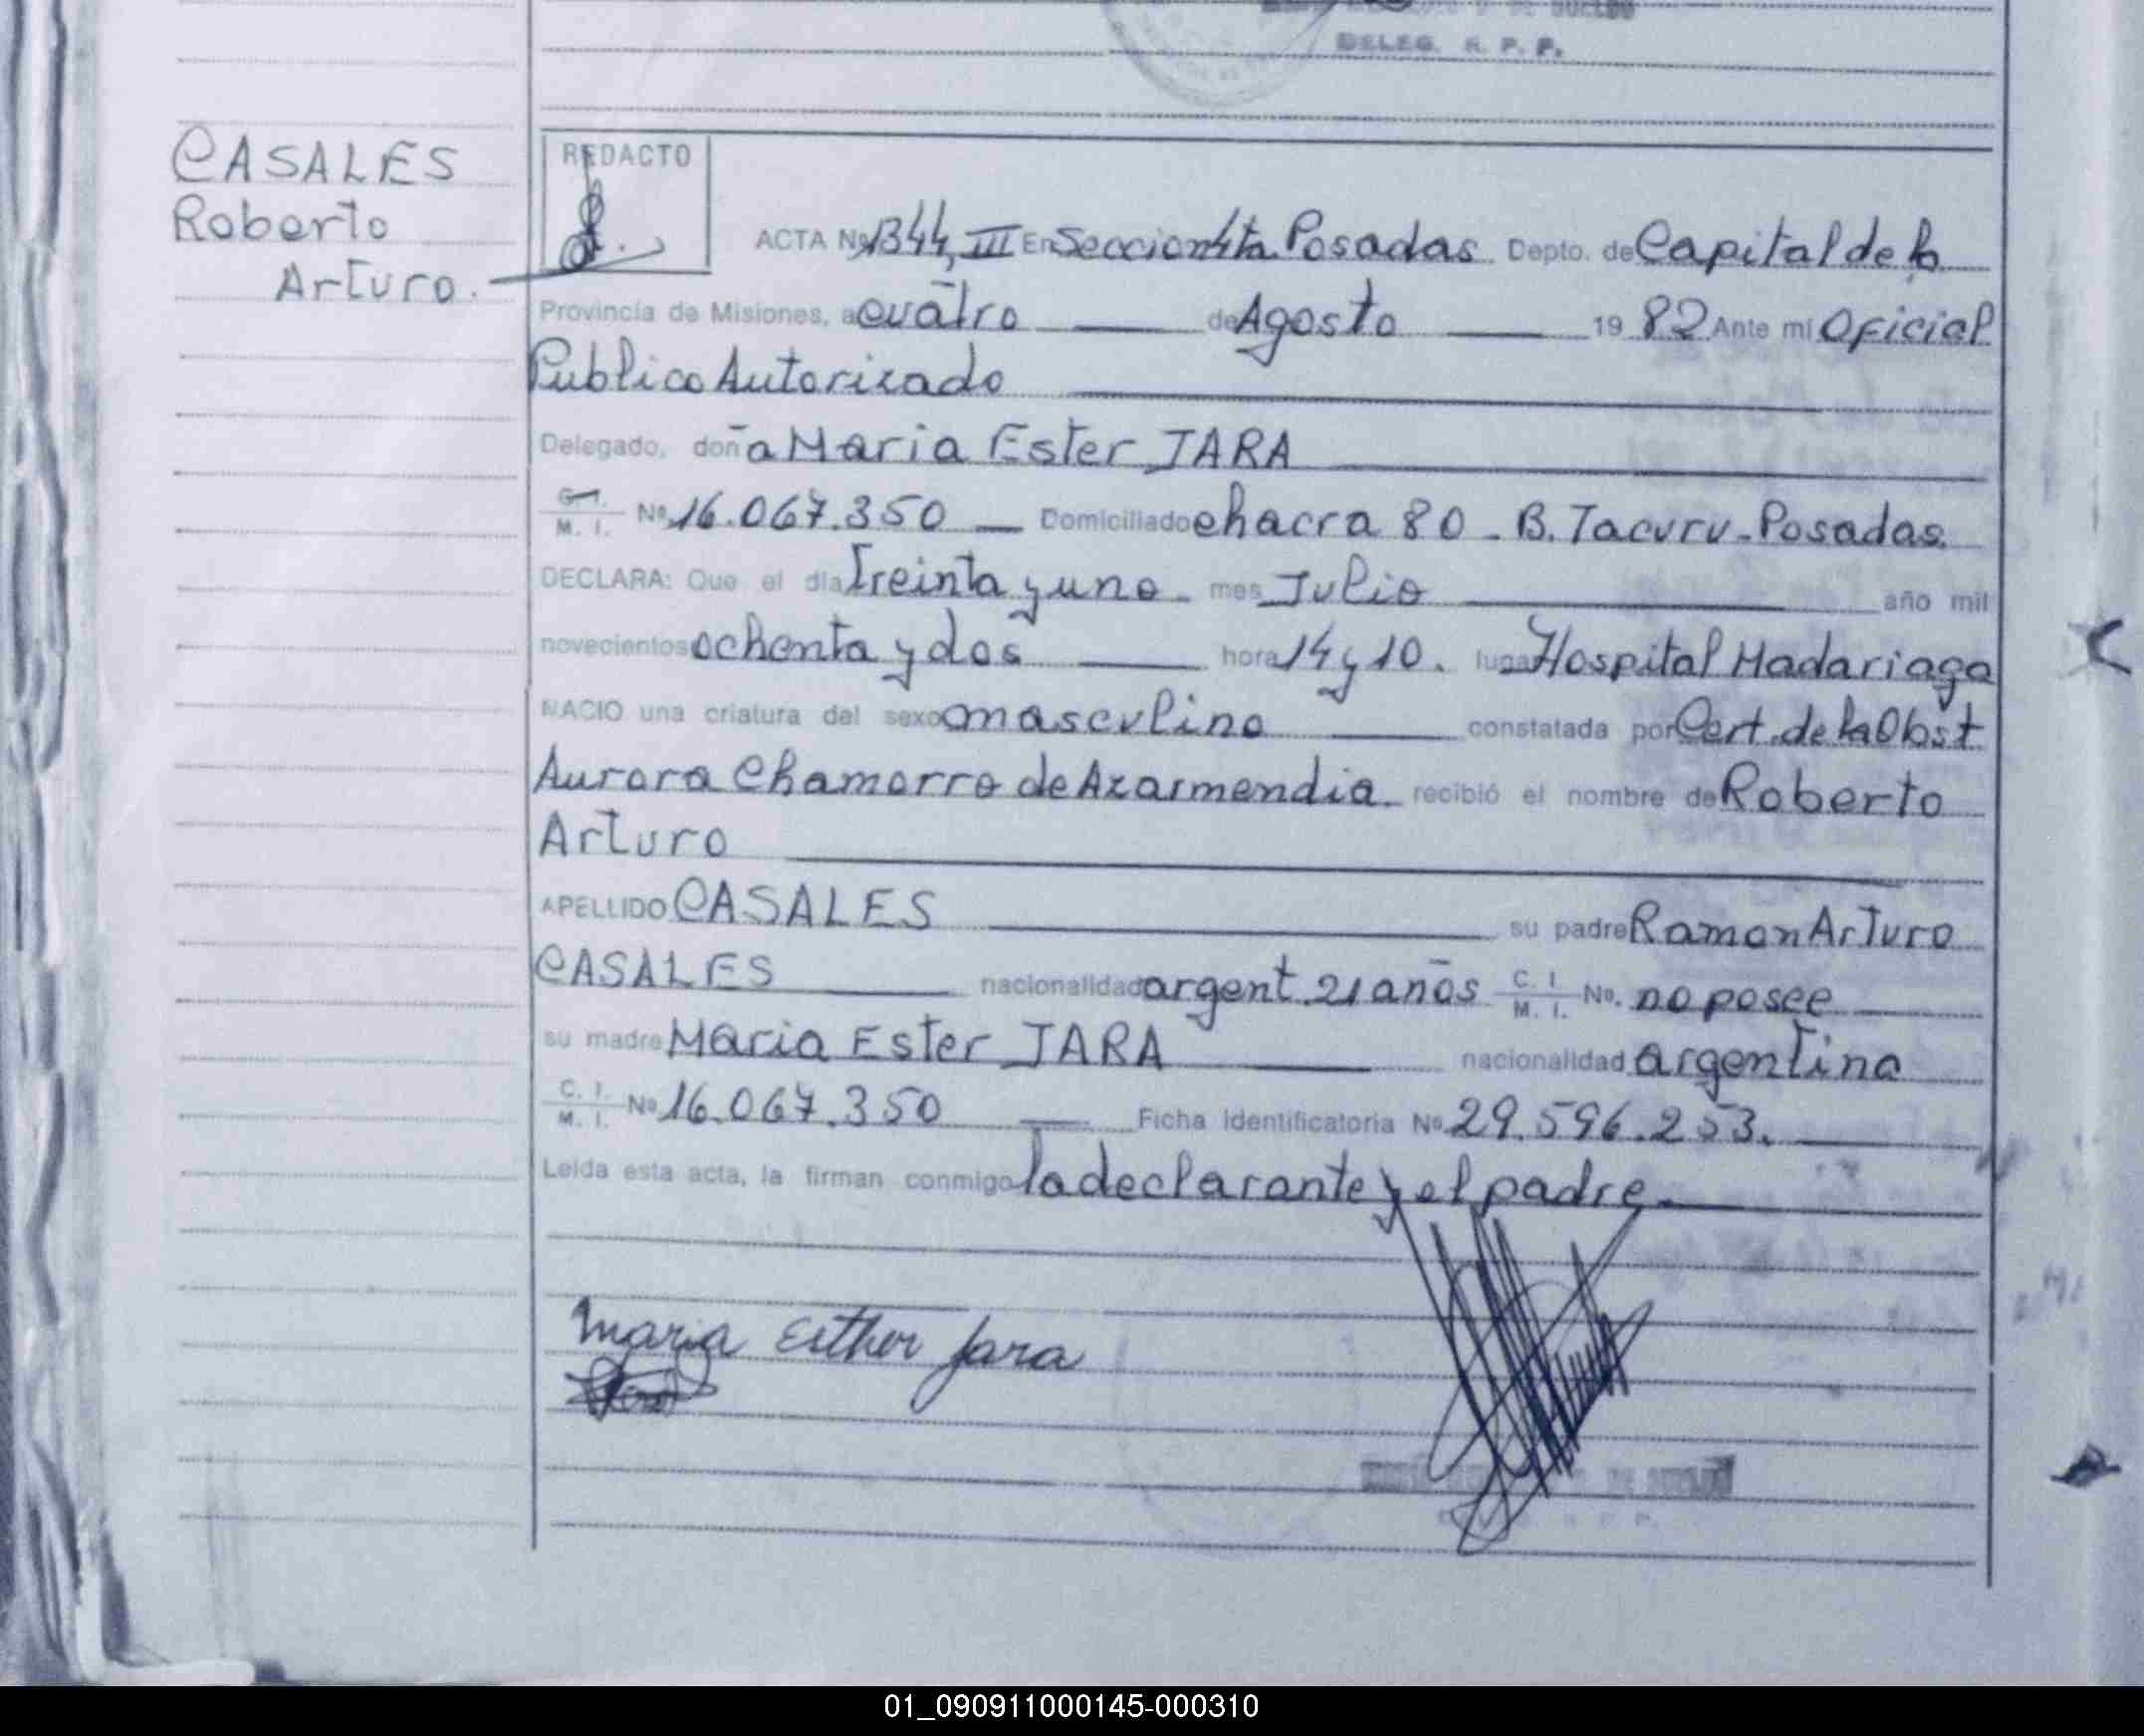 DE SUELDO
DELEG. R. P. P.
CASALES
Roberto
Arturo.
REDACTO
ACTA Nº 1344, III En Seccion 4ta Posadas Depto. de Capital de la
Provincia de Misiones, a cuatro de Agosto 1982 Ante mí Oficial
Publico Autorizado
Delegado, doña Maria Ester JARA
C. I. M. I. Nº 16.067.350 Domiciliado chacra 80 - B. Tacuru - Posadas.
DECLARA: Que el día Treinta y uno mes Julio año mil
novecientos ochenta y dos hora 14 y 10. lugar Hospital Madariaga
NACIO una criatura del sexo masculino constatada por Cert. de la Obst
Aurora Chamorro de Azarmendia recibió el nombre de Roberto
Arturo
APELLIDO CASALES su padre Ramon Arturo
CASALES nacionalidad argent. 21 años C. I. M. I. No. no posee
su madre Maria Ester JARA nacionalidad argentina
C. I. M. I. Nº 16.067.350 Ficha Identificatoria Nº 29.596.253.
Leída esta acta, la firman conmigo la declarante y el padre
Maria Esther Jara
01_090911000145-000310